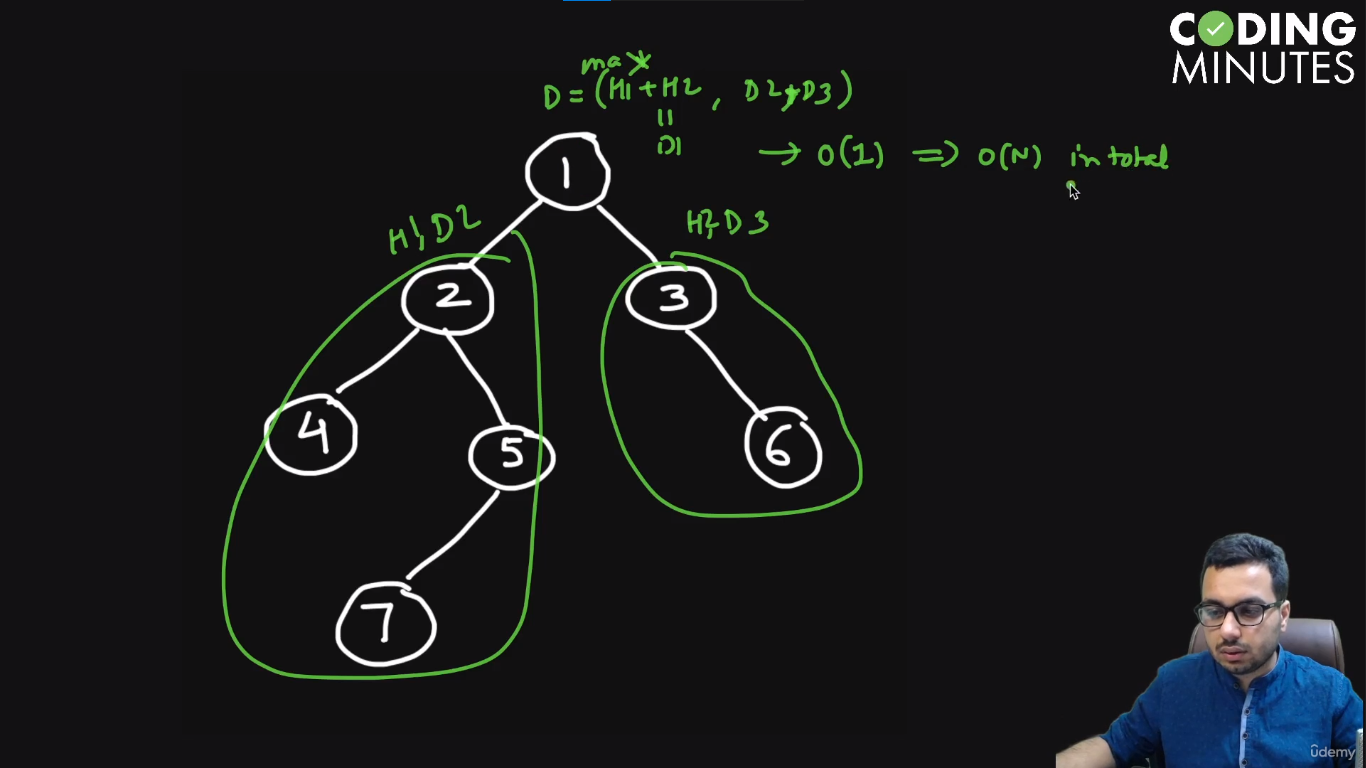 CODING
MINUTES
max
D = (H1 + H2 , D2, D3)
||
D1
→ O(1) ⇒ O(N) in total
1
H1, D2
H2, D3
2
3
4
5
6
7
ûdemy